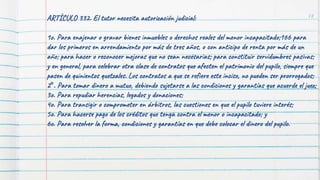 ARTÍCULO 332. El tutor necesita autorización judicial:
1o. Para enajenar o gravar bienes inmuebles o derechos reales del menor incapacitado;166 para
dar los primeros en arrendamiento por más de tres años, o con anticipo de renta por más de un
año; para hacer o reconocer mejoras que no sean necesarias; para constituir servidumbres pasivas;
y en general, para celebrar otra clase de contratos que afecten el patrimonio del pupilo, siempre que
pasen de quinientos quetzales. Los contratos a que se refiere este inciso, no pueden ser prorrogados;
2º. Para tomar dinero a mutuo, debiendo sujetarse a las condiciones y garantías que acuerde el juez;
3o. Para repudiar herencias, legados y donaciones;
4o. Para transigir o comprometer en árbitros, las cuestiones en que el pupilo tuviere interés;
5o. Para hacerse pago de los créditos que tenga contra el menor o incapacitado; y
6o. Para resolver la forma, condiciones y garantías en que debe colocar el dinero del pupilo.